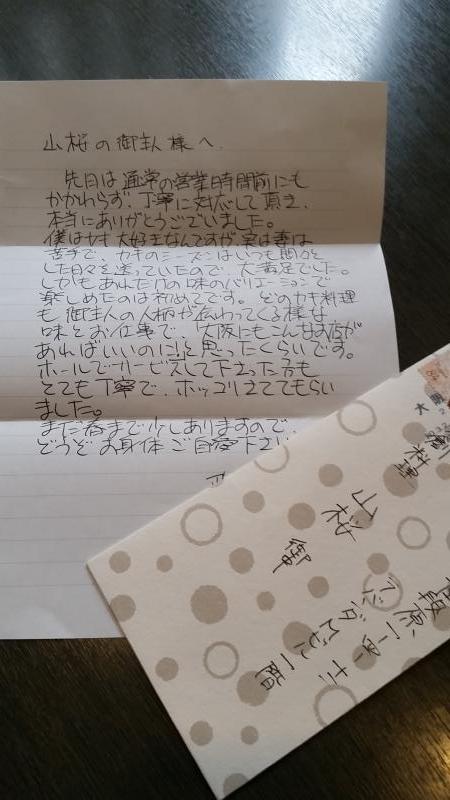 山桜の御主人様へ
先日は通常の営業時間前にも
かかわらず、丁寧に対応して頂き、
本当にありがとうございました。
僕はカキ大好きなんですが、実は妻は
苦手で、カキのシーズンはいつも悶々と
した日々を送っていたので、大満足でした。
しかもあれだけの味のバリエーションで
楽しめたのは初めてです。どのカキ料理
も御主人の人柄が伝わってくる様な
味とお仕事で、大阪にもこんなお店が
あればいいのに!と思ったくらいです。
ホールでサービスして下さった方も
とても丁寧で、ホッコリさせてもらい
ました。
まだ春まで少しありますので、
どうぞお身体ご自愛下さい
料理
山桜 御中
段原一ー十
ビル一階